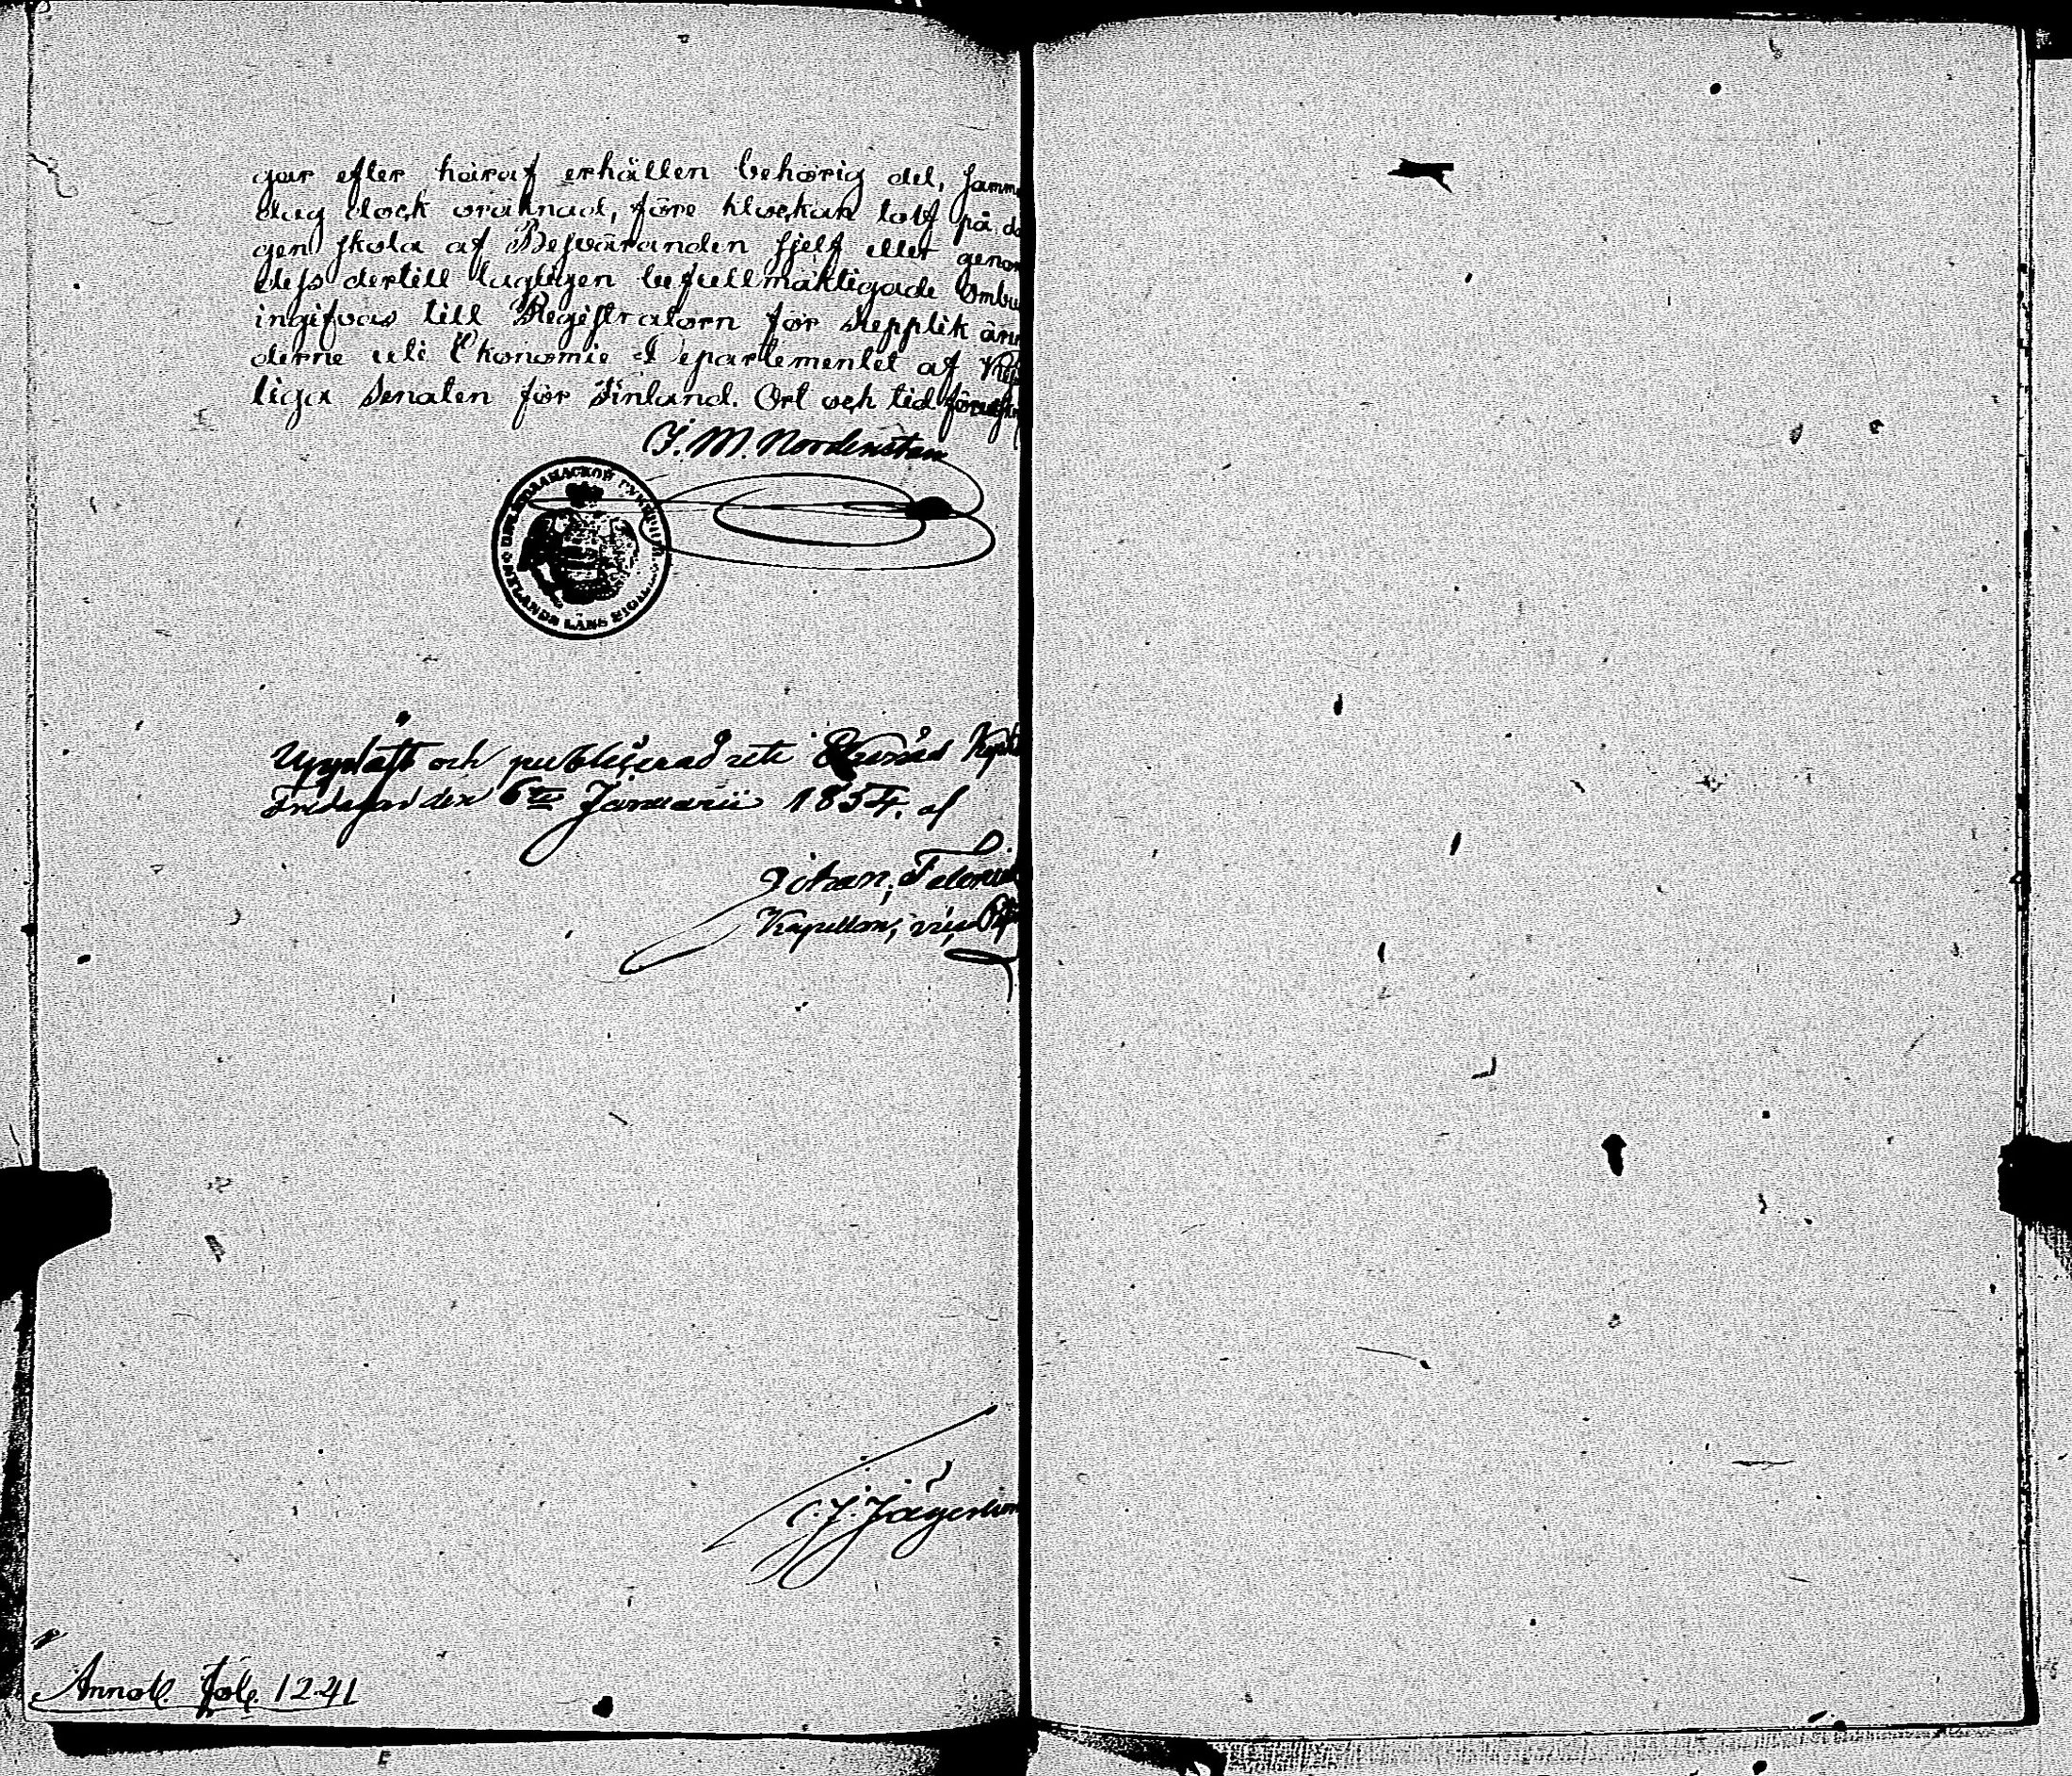 gar efter häraf erhållen behörig del, samma
dag dock oräknad, före klockan tolf på da
gen skola af Besväranden sjelf eller genom
dess dertill lagligen befullmäktigade Ombu
ingifvas till Registratorn för Supplik ären
derne uti Ekonomie Departementet af Kejs
liga Senaten för Finland. Ort och tid förutskr
J. M. Nordenstam
LÄNS SIGILL
Uppläst och publicerad uti Kapell
Fredagen den 6te Januarii 1854. af
Johan
Kapellan,
C. J. Jägerhorn
Annot. fol. 1241